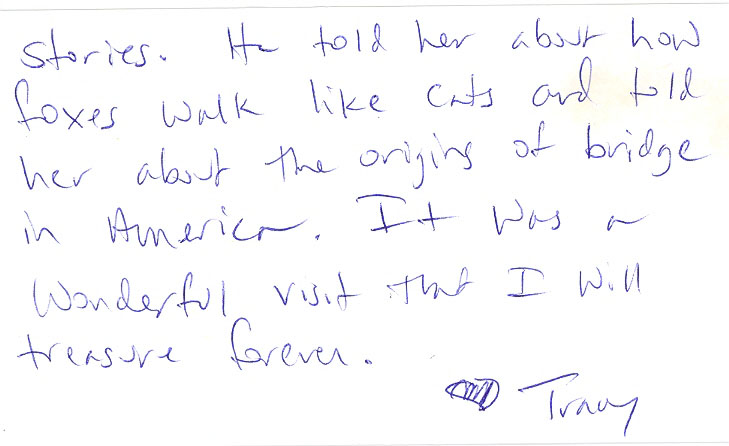 stories. He told her about how
foxes walk like cats and told
her about the origins of bridge
in America. It was a
wonderful visit that I will
treasure forever.
Tracy